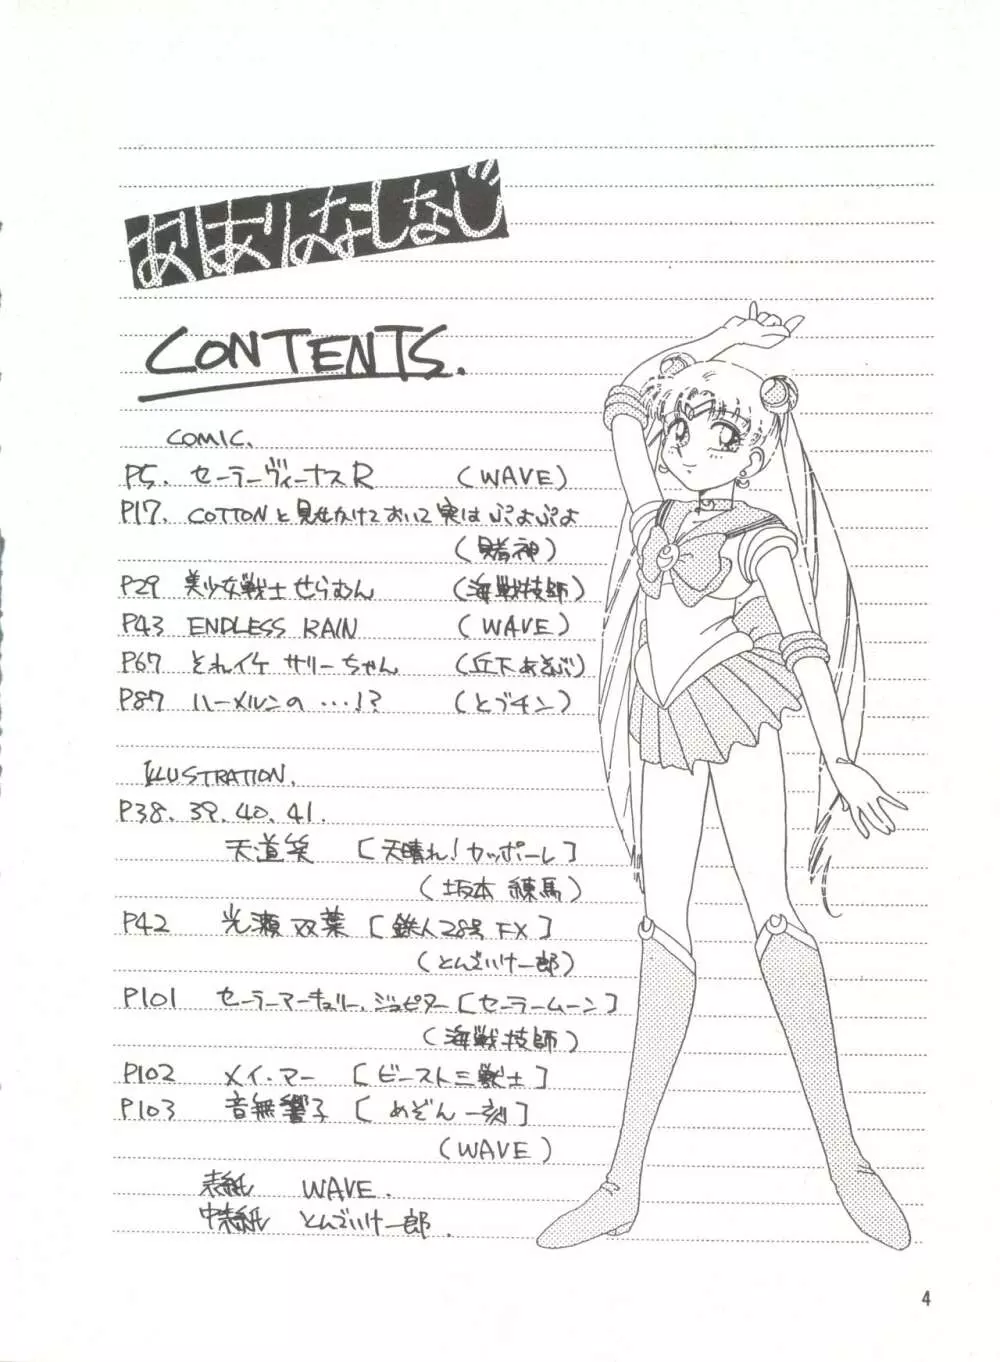 あはりなしなじ
CONTENTS.
COMIC.
P5. セーラーヴィーナスR (WAVE)
P17. COTTONと見せかけておいて実はぷよぷよ
(賭神)
P29 美少女戦士せらむん (海戦技師)
P43 ENDLESS RAIN (WAVE)
P67 それイケ サリーちゃん (丘下あそぶ)
P87 ハーメルンの・・・!? (とブチン)
ILLUSTRATION.
P38. 39. 40. 41.
天道笑 [天晴れ!カッポーレ]
(坂本 練馬)
P42 光瀬 双葉 [鉄人28号 FX]
(とんでいけ一郎)
P101 セーラーマーキュリー.ジュピター [セーラームーン]
(海戦技師)
P102 メイ・マー [ビースト三獣士]
P103 音無響子 [めぞん一刻]
(WAVE)
表紙 WAVE.
中表紙 とんでいけ一郎.
4